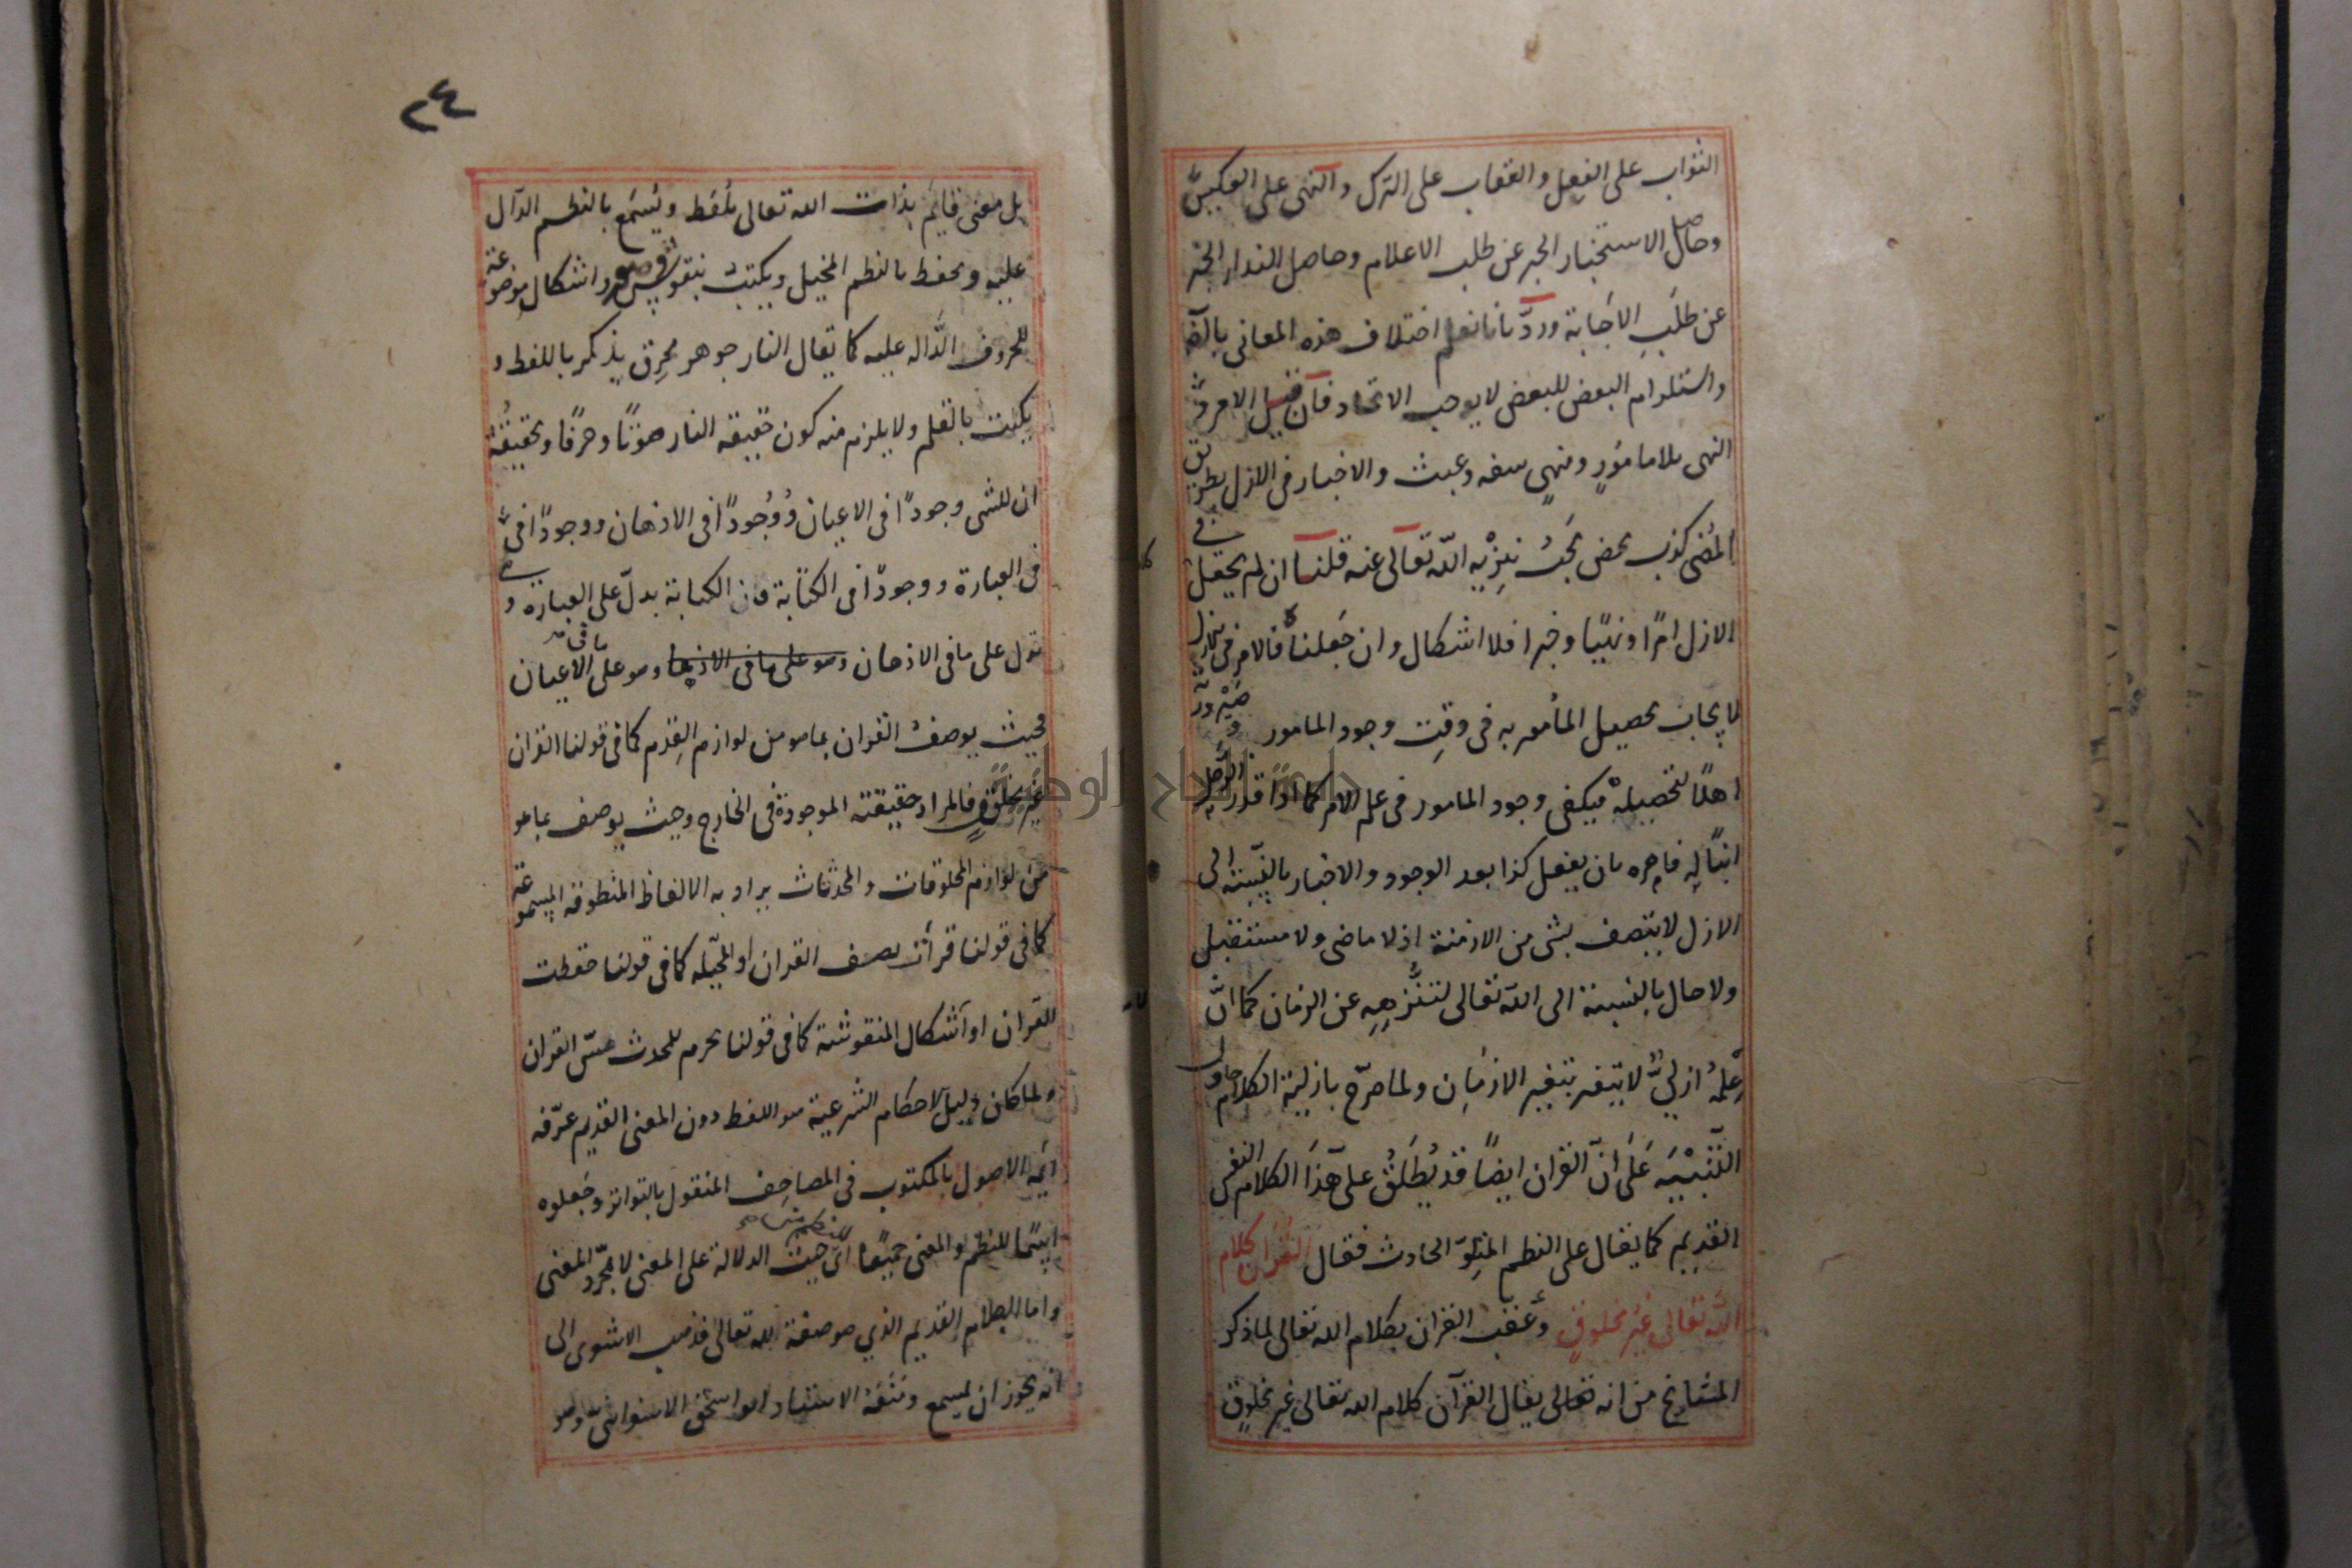 الثواب على الفعل والعقاب على الترك والنهى على العكس
وحاصل الاستخبار الخبر عن طلب الاعلام وحاصل الندار الخبر
عن طلب الاجابة وردّ بانا نعلم اختلاف هذه المعانى بالضرورة
واستلزام البعض للبعض لا يوجب الاتحاد فان قيل الامر و
النهى بلا مامور ومنهى سفه وعبث والاخبار فى الازل بطريق
المضى كذب محض يجب تنزيه الله تعالى عنه قلنا ان لم يجعل
الازل امرًا ونهيًا وخبرا فلا اشكال وان جعلنا فالامر فى الازل
لايجاب تحصيل المأمور به فى وقت وجود المامور وصيرورته
اهلًا لتحصيله فيكفى وجود المامور فى علم الامر كما اذا قدر الرجل
ابنًا له فامره بان يفعل كذا بعد الوجود والاخبار بالنسبة الى
الازل لا يتصف بشئ من الازمنة اذ لا ماضى ولا مستقبل
ولا حال بالنسبة الى الله تعالى لتنزهه عن الزمان كما انّ
علمه ازلىّ لا يتغير بتغير الازمان ولما صرّح بازلية الكلام حاول
التّنبيه على انّ القران ايضًا قد يُطلق على هذا الكلام النفسى
القديم كما يقال على النظم المتلوّ الحادث فقال القران كلام
الله تعالى غير مخلوق وعقّب القران بكلام الله تعالى لما ذكر
المشايخ من انه تعالى يقال القرآن كلام الله تعالى غير مخلوق
٢٤
بل معنى قايم بذات الله تعالى يلفظ ويسمع بالنظم الدال
عليه ويحفظ بالنظم المخيل ويكتب بنقوش وصور واشكال موضوعة
للحروف الدّاله عليه كما يقال النار جوهر محرق يذكر باللفظ و
يكتب بالقلم ولا يلزم منه كون حقيقة النار صوتًا وحرفًا وتحقيقه
ان للشى وجودًا فى الاعيان ووجودًا فى الاذهان ووجودًا فى
فى العبارة ووجودًا فى الكتابة فان الكتابة يدلّ على العبارة و
تدل على ما فى الاذهان وهو على ما فى الاذها وهو على ما فى الاعيان
فحيث يوصف القران بما هو من لوازم القدم كما فى قولنا القران
غير مخلوق فالمراد حقيقته الموجودة فى الخارج وحيث يوصف بما هو
من لوازم المخلوقات والمحدثات يراد به الالفاظ المنطوقه المسموعة
كما فى قولنا قرأت نصف القران او المخيّله كما فى قولنا حفظت
القران او اشكال المنقوشة كما فى قولنا يحرم للمحدث مسّ القران
ولما كان دليل الاحكام الشرعية هو اللفظ دون المعنى القديم عرّفه
ايمة الاصول بالمكتوب فى المصاحف المنقول بالتواتر وجعلوه
اسمًا للنظم والمعنى جميعًا اى للنظم من حيث الدلالة على المعنى لا مجرّد المعنى
واما الكلام القديم الذي هو صفة الله تعالى فذهب الاشعرى الى
انه يجوز ان يسمع ومنعه الاستاد ابو اسحق الاسفراينى وهو